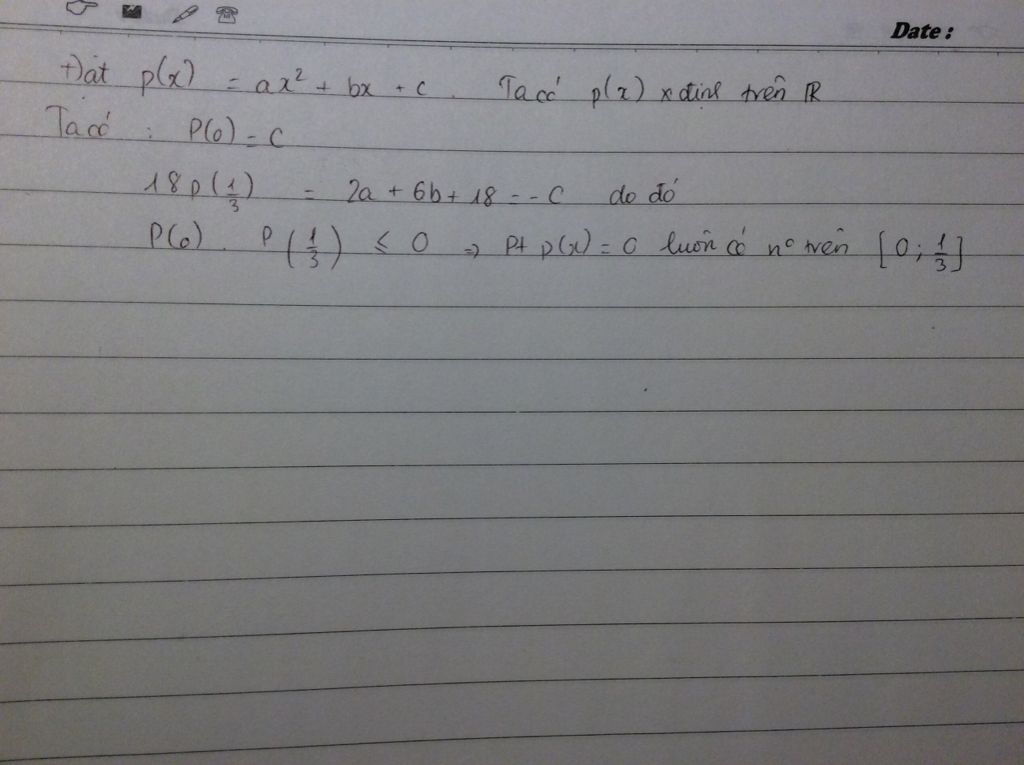 Date :
Đặt p(x) = ax² + bx + c . Ta có p(x) xđịnh trên ℝ
Ta có : P(0) = c
18p(1/3) = 2a + 6b + 18 = - c do đó
P(0) . P(1/3) ≤ 0 => Pt p(x) = 0 luôn có n° trên [0; 1/3]